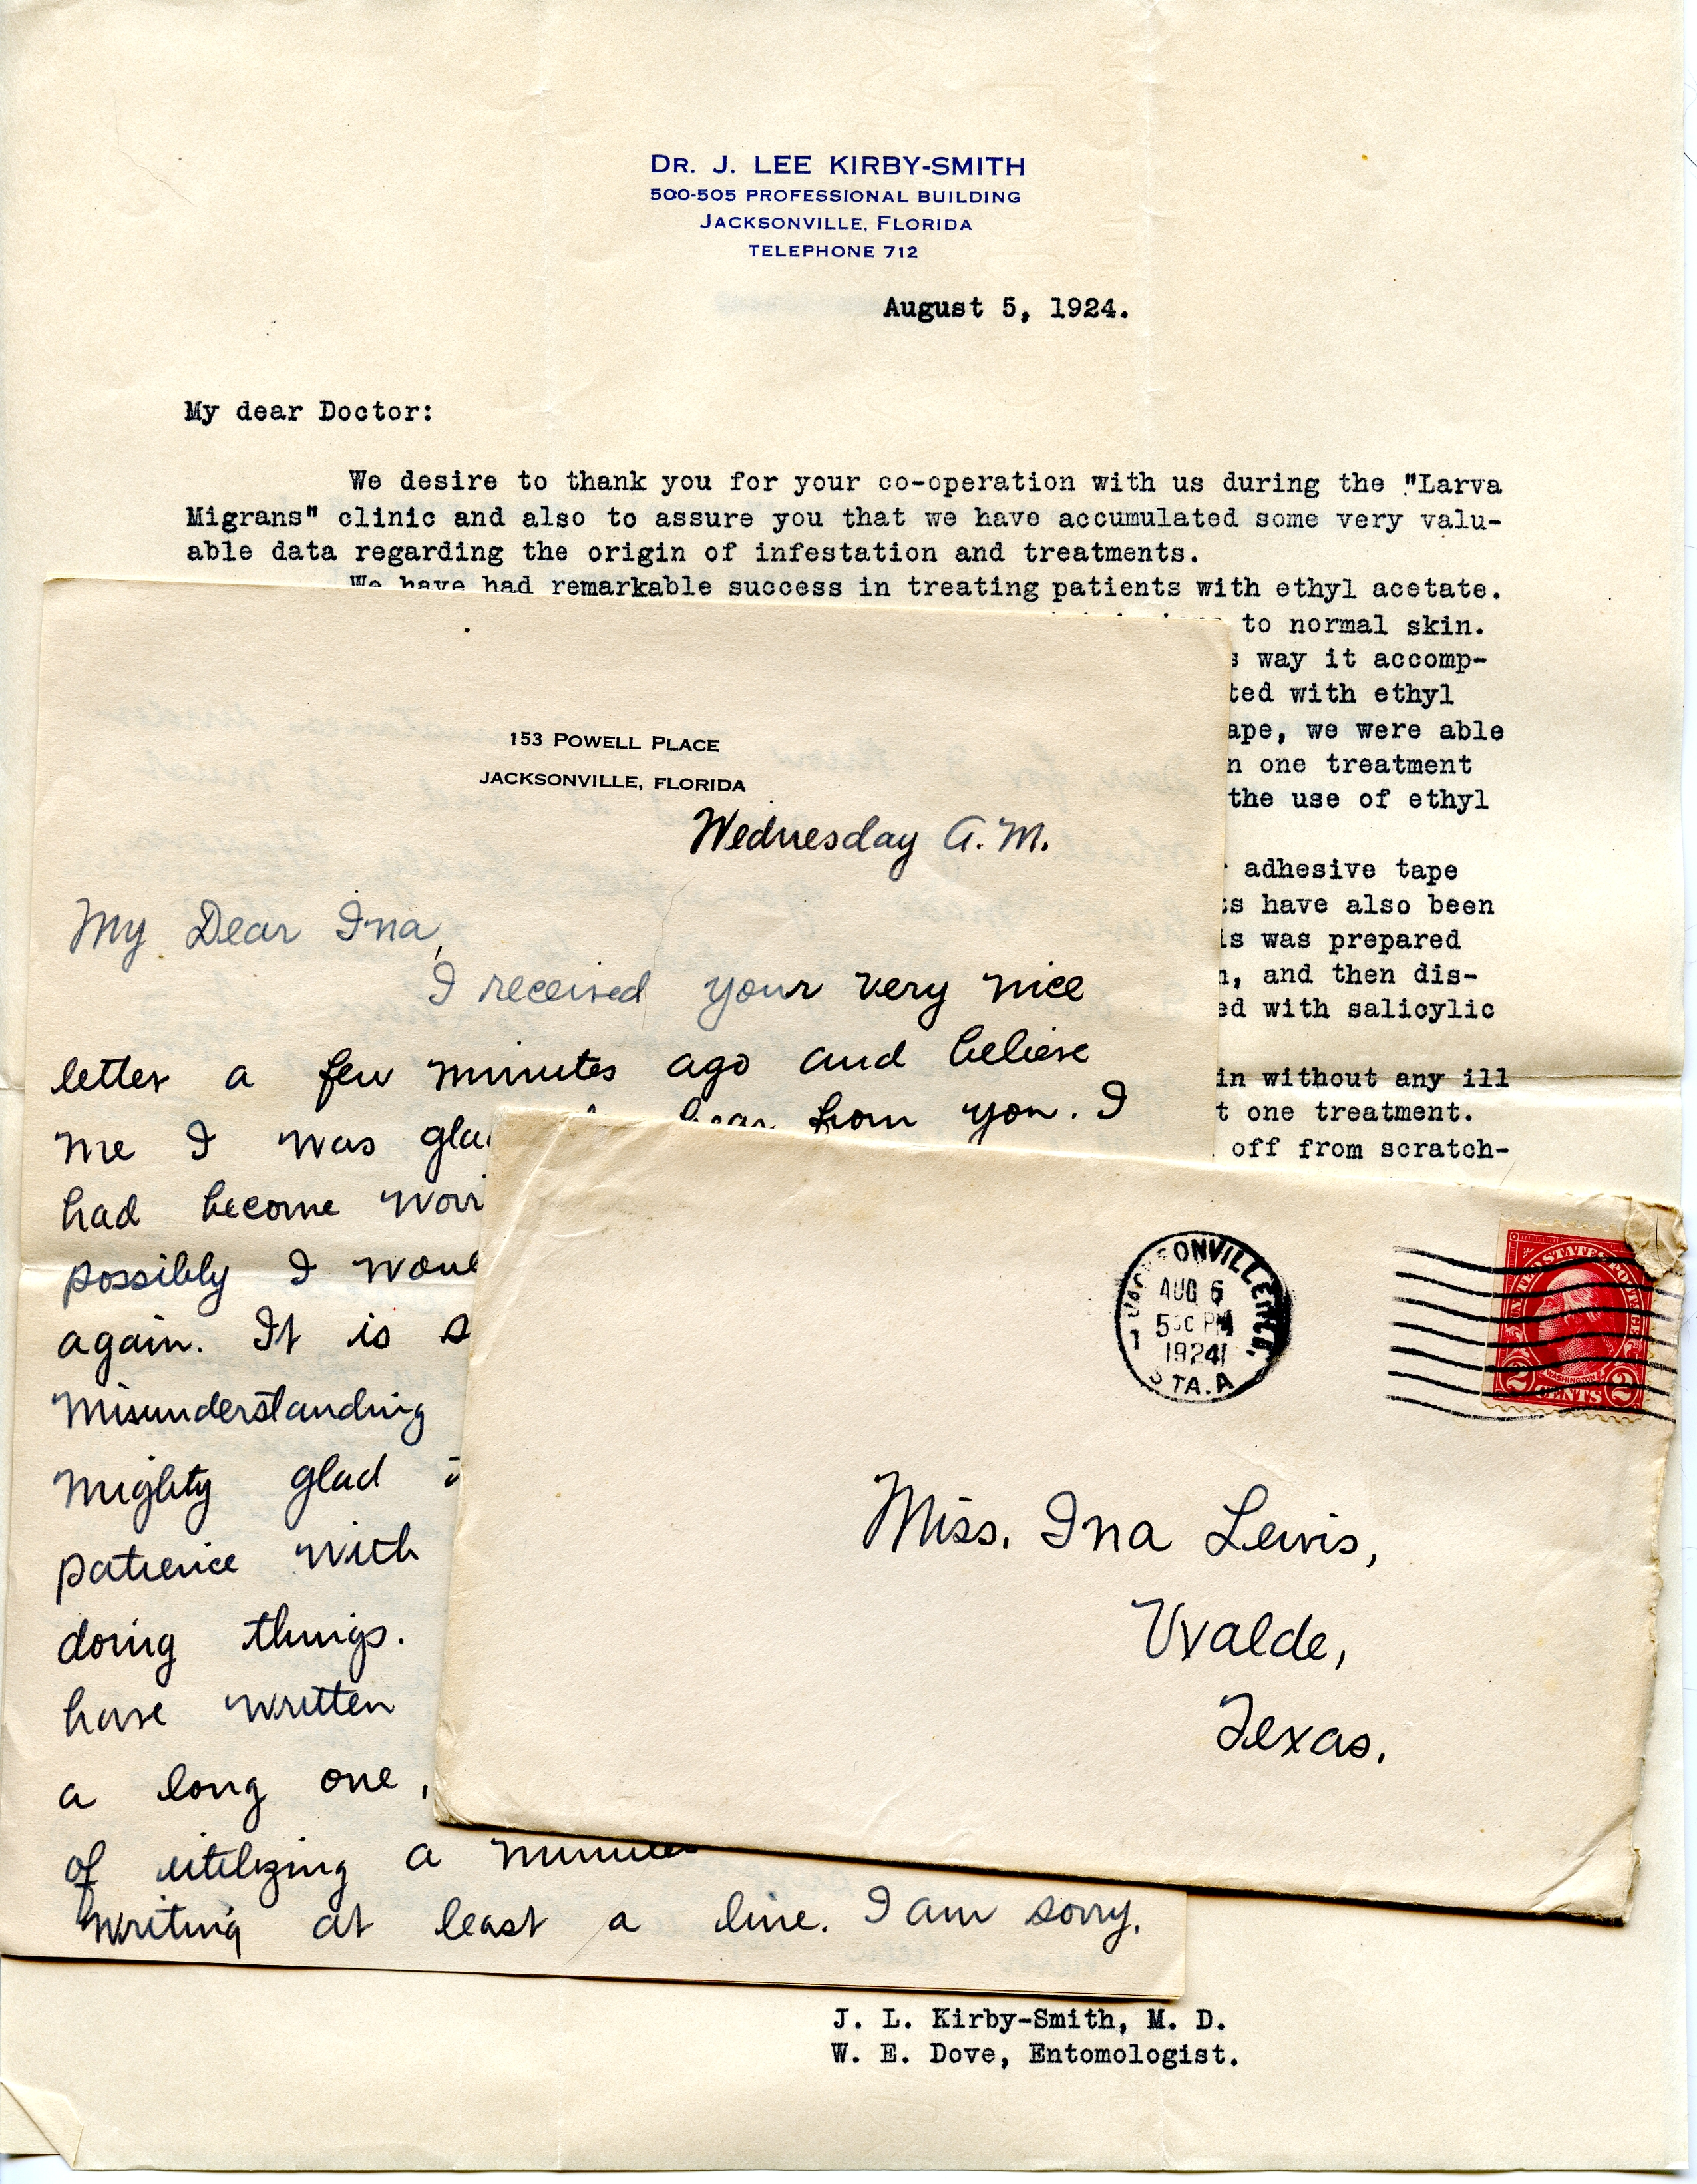 DR. J. LEE KIRBY-SMITH
500-505 PROFESSIONAL BUILDING
JACKSONVILLE, FLORIDA
TELEPHONE 712
August 5, 1924.
My dear Doctor:
We desire to thank you for your co-operation with us during the "Larva
Migrans" clinic and also to assure you that we have accumulated some very valu-
able data regarding the origin of infestation and treatments.
We have had remarkable success in treating patients with ethyl acetate.
to normal skin.
way it accomp-
ted with ethyl
ape, we were able
n one treatment
the use of ethyl
adhesive tape
s have also been
is was prepared
n, and then dis-
ed with salicylic
in without any ill
t one treatment.
off from scratch-
J. L. Kirby-Smith, M. D.
W. E. Dove, Entomologist.
153 POWELL PLACE
JACKSONVILLE, FLORIDA
Wednesday A.M.
My Dear Ina,
I received your very nice
letter a few minutes ago and believe
me I was gla hear from you. I
had become worr
possibly I woul
again. It is s
misunderstanding
mighty glad
patience with
doing things.
have written
a long one,
of utilizing a minute
writing at least a line. I am sorry.
JACKSONVILLE
AUG 6
5 PM
1924
STA. A
1
UNITED STATES POSTAGE
WASHINGTON
2 CENTS 2
Miss. Ina Lewis,
Uvalde,
Texas.